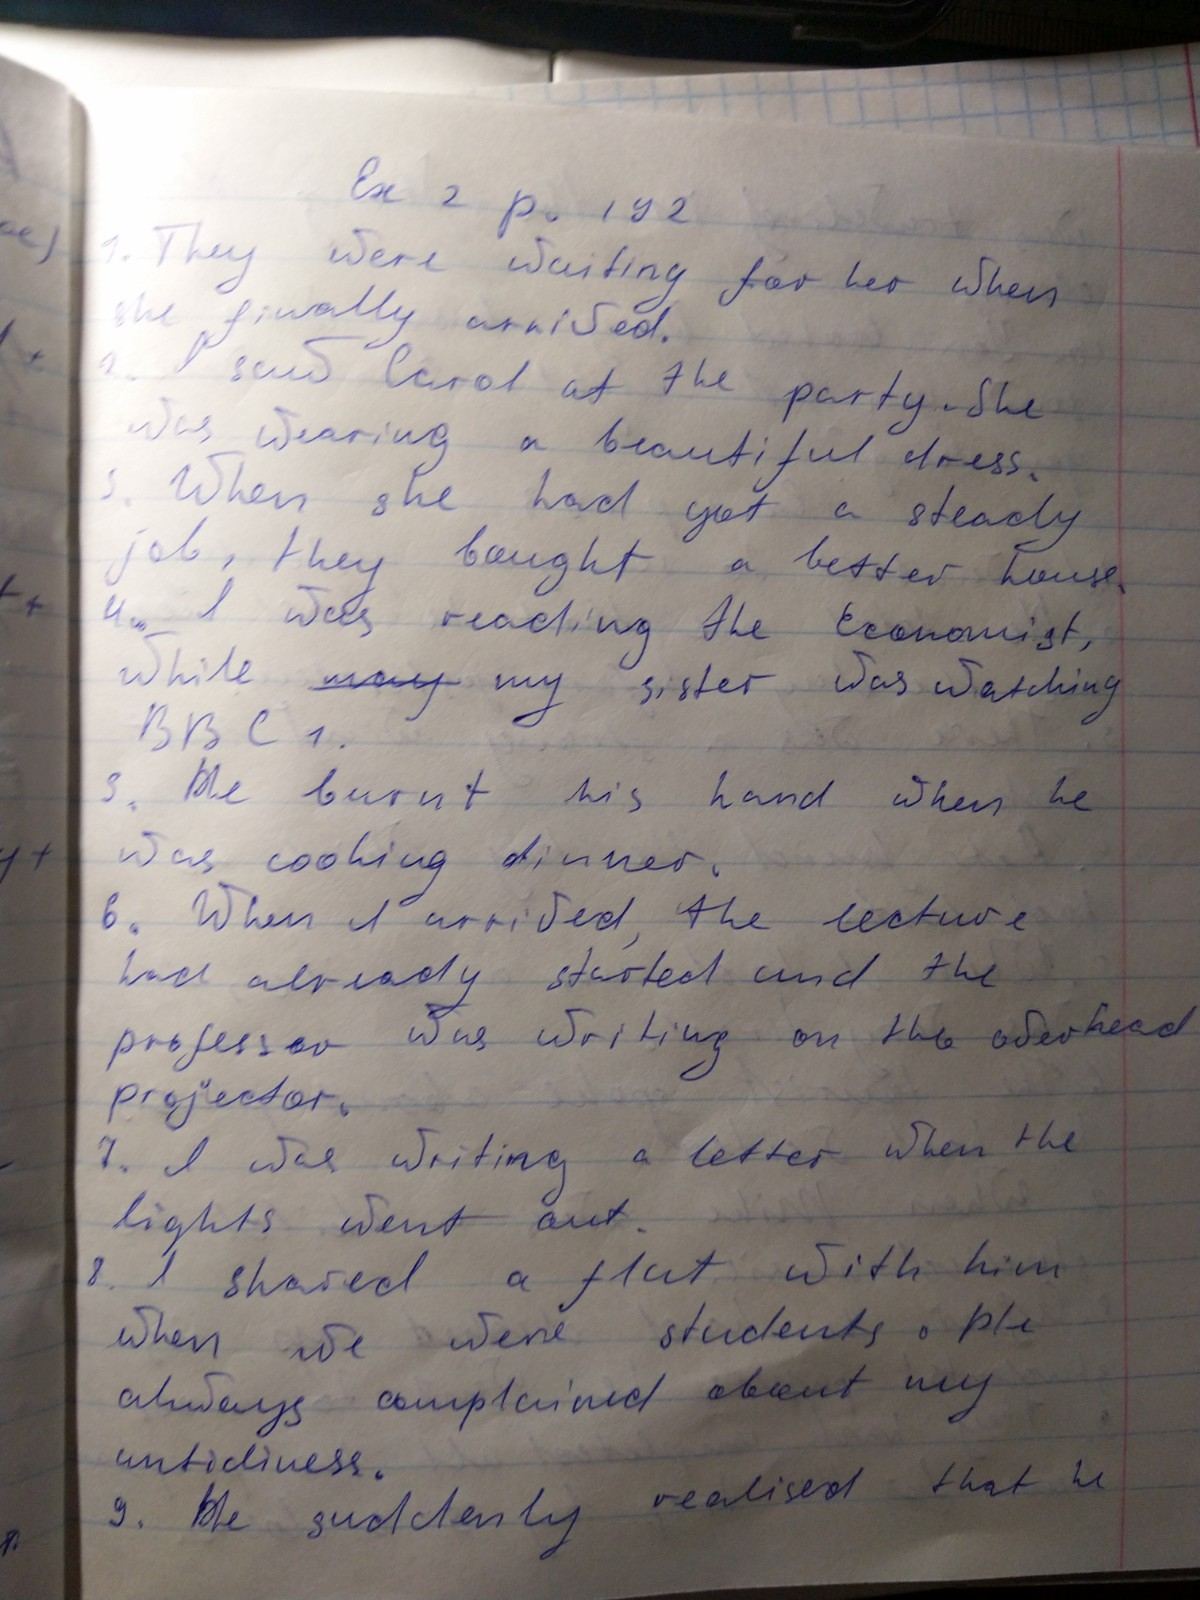 Ex 2 p. 142
1. They were waiting for her when
she finally arrived.
2. I saw Carol at the party. She
was wearing a beautiful dress.
3. When she had got a steady
job, they bought a better house.
4. I was reading the Economist,
while may my sister was watching
BBC 1.
5. He burnt his hand when he
was cooking dinner.
6. When I arrived, the lecture
had already started and the
professor was writing on the overhead
projector.
7. I was writing a letter when the
lights went out.
8. I shared a flat with him
when we were students. He
always complained about my
untidiness.
9. He suddenly realised that he